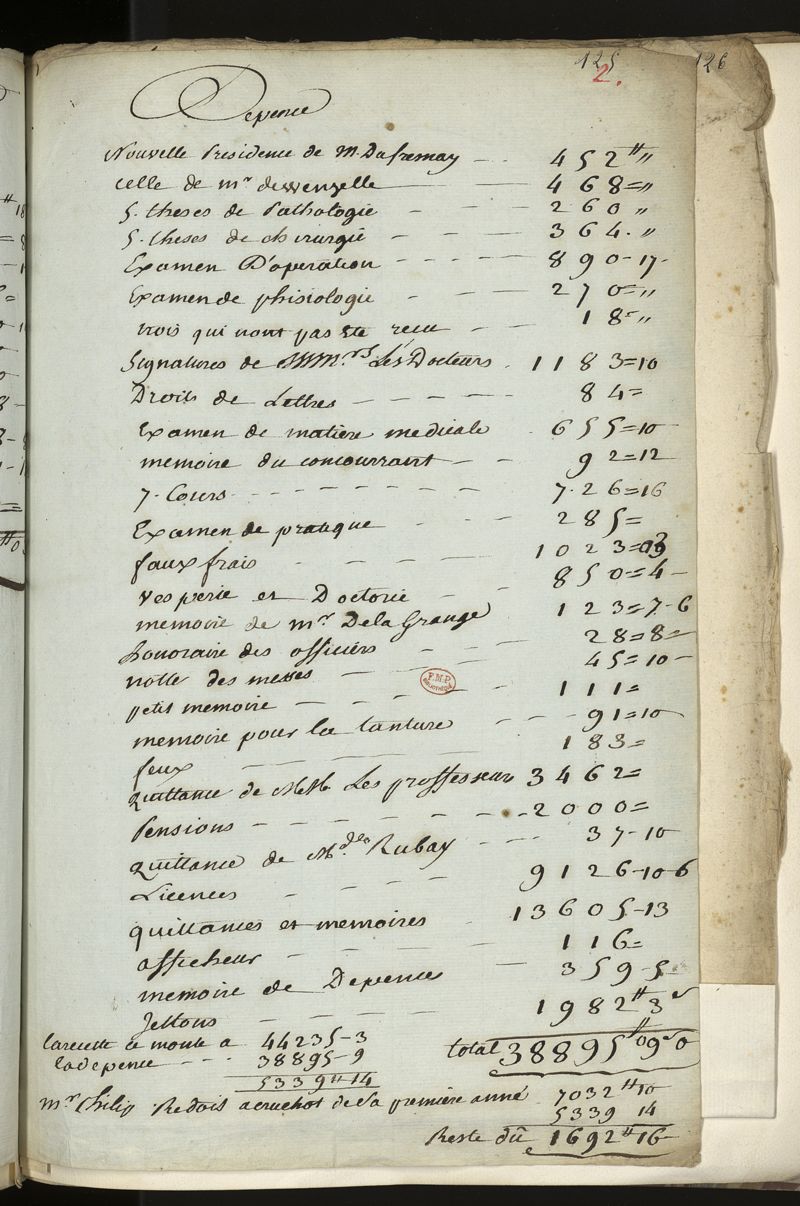 125 126
2.
Depence
Nouvelle Presidence de M. Dufremay -- 452 ₶ „
celle de mr. dewenzelle — 468 = „
5. theses de Pathologie - - - 260 „
5. theses de chirurgie - - - 364. „
Examen D'operation - - - 890-17-
Examen de phisiologie - - - 270 = „
trois qui nont pas ete recu - - 18 = „
Signatures de MM.rs Les Docteurs. 1183=10
Droits de Lettres - - - - - 84=
Examen de matiere medicale - 655=10
memoire du concourrant - - 92=12
7. Cours - - - - - - 7.26=16
Examen de pratique - - - 285=
faux frais - - - - 1023=
vesperie et Doctorie - - 850=4-
memoire de mr. Dela Grange 123=7-6
honoraire des officiers - - 28=8=
notte des messes - - - 45=10-
petit memoire - - - - 111=
memoire pour la tanture - - - 91=10
feux - - - 183=
quittance de MM. Les proffesseurs 3462=
Pensions - - - - - - 2000=
quittance de Mdlle. Rubay - - - 37-10
Licences - - - - 9126-10-6
quittances et memoires - 13605-13
afficheur - - - - 116=
memoire de Depences - 359-5
Jettons - - - - 1982₶3s
La recette ce monte a 44235-3
La depence - - - 38895-9 total 38895₶09s0
5339₶14
mr. Philip Redois a cruchot de Sa premiere anné 7032₶10
5339 14
Reste dû 1692₶16
F.M.P.
BIBLIOTHÈQUE